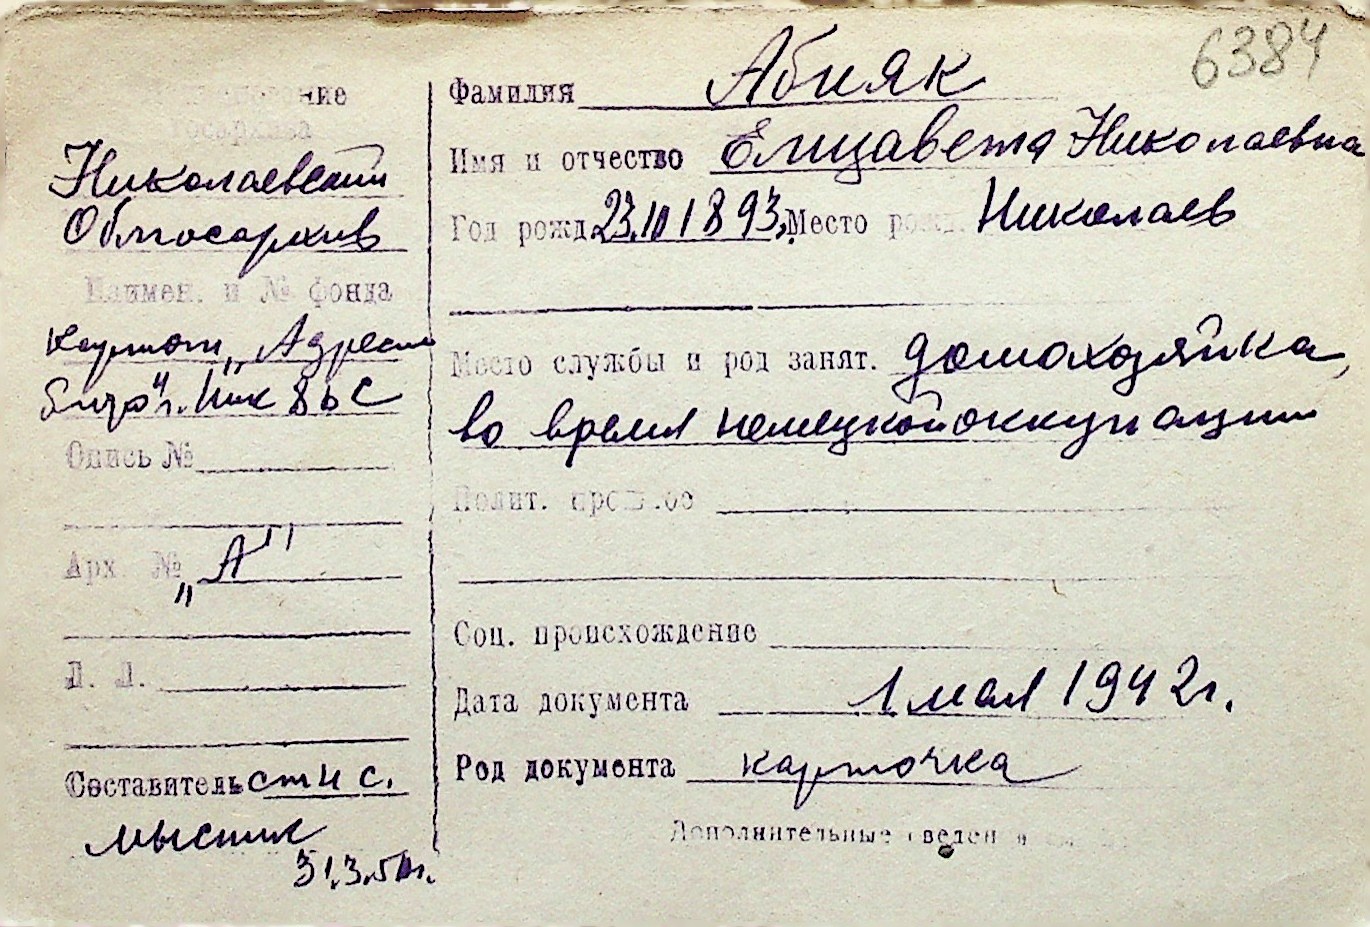 6384
Наименование
госархива
Николаевский
Облгосархив
Наимен. и № фонда
картот. „Адресн
бюро" г. Ник
Опись №
Арх. № „А"
Л. Л.
Составитель ст н с.
31.3.
Фамилия Абияк
Имя и отчество Елизавета Николаевна
Год рожд. 23.10 1893, Место рожд. Николаев
Место службы и род занят. домохозяйка,
во время немецкой оккупации
Полит. прошлое
Соц. происхождение
Дата документа 1 мая 1942 г.
Род документа карточка
Дополнительные сведения